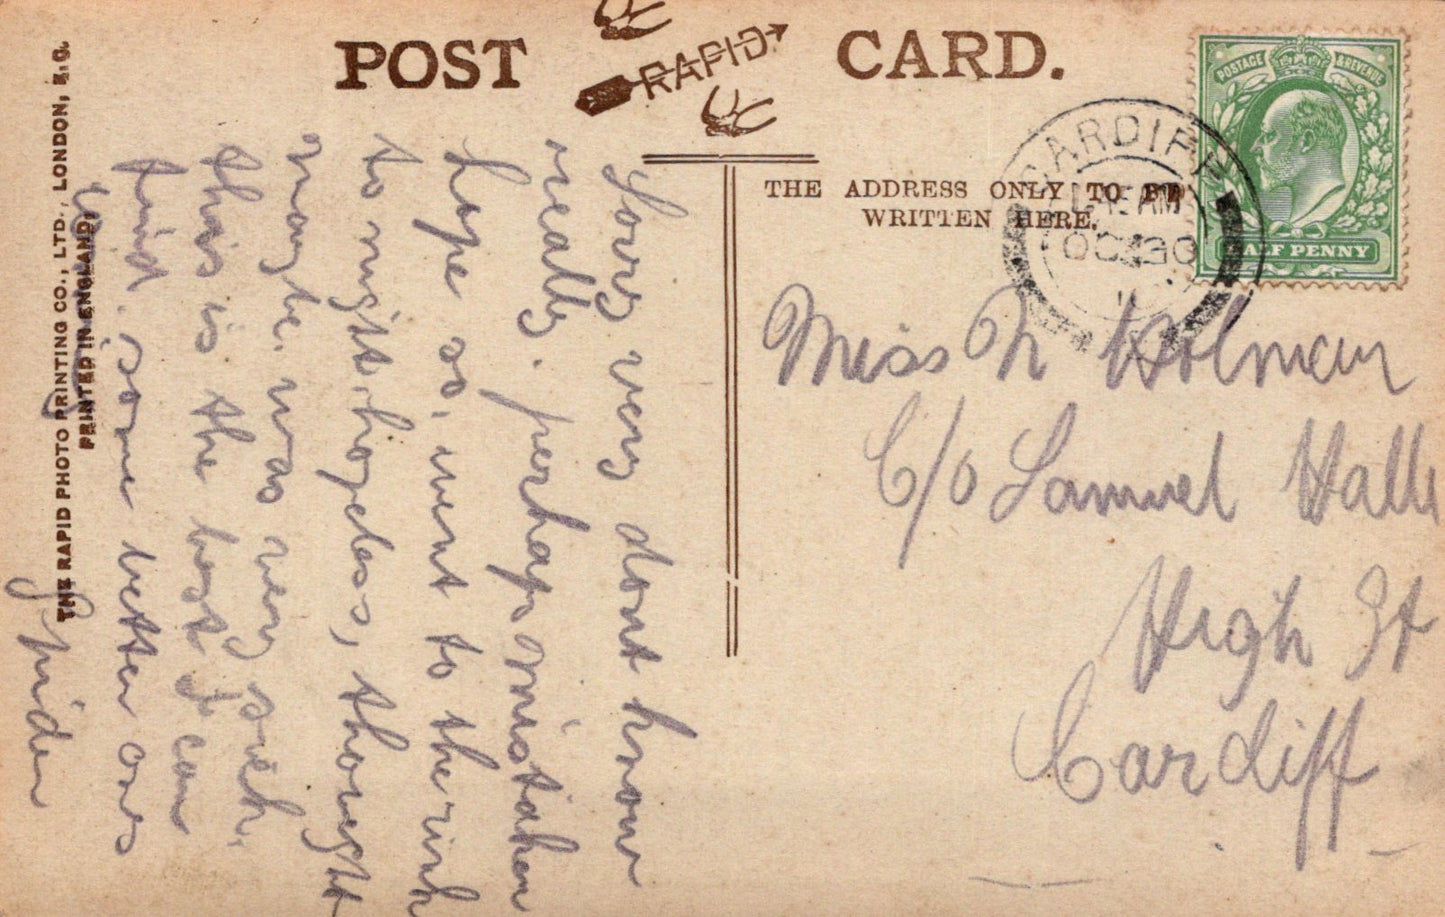 POST CARD.
RAPID
THE ADDRESS ONLY TO BE
WRITTEN HERE.
POSTAGE & REVENUE
HALF PENNY
CARDIFF
AM
OC 30
11
Miss N Holman
C/o Samuel Hall
High St
Cardiff
Sorry very dont know
really. perhap mistaken
hope so, went to the rink
to night, hopeless, thought
maybe. was very sick.
this is the best I can
find. some better ones
THE RAPID PHOTO PRINTING CO., LTD., LONDON, E.C.
PRINTED IN ENGLAND.